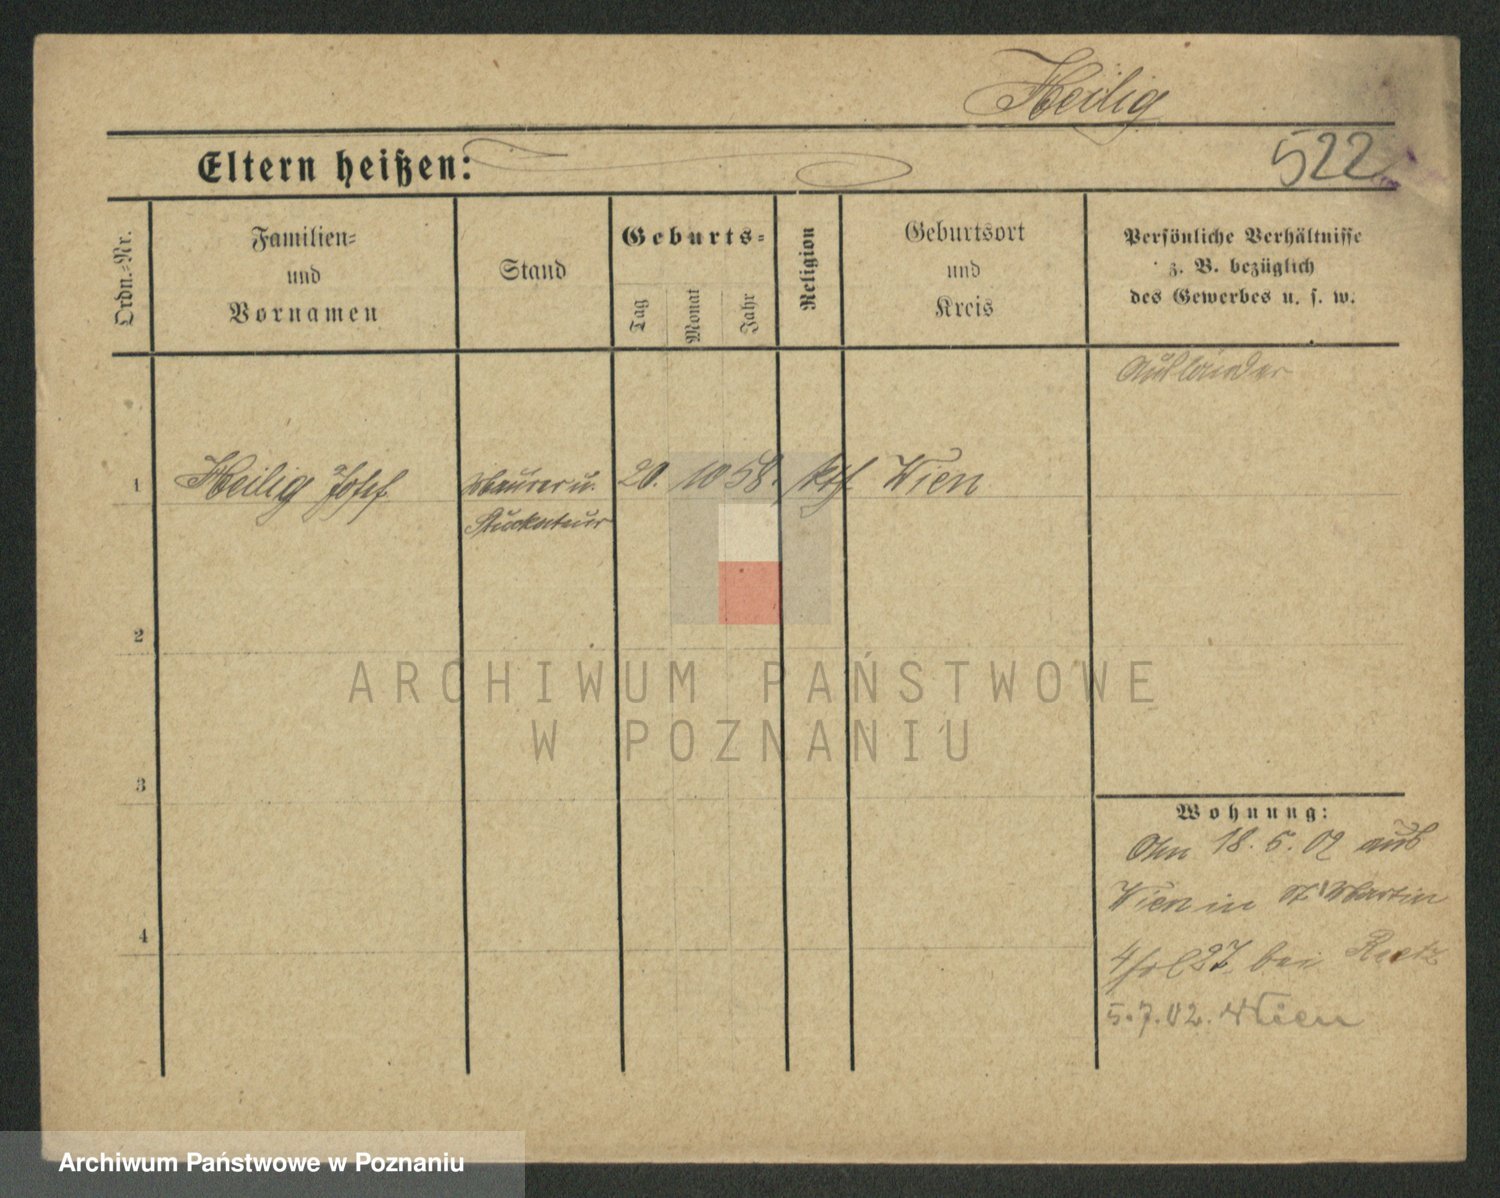 Heilig
Eltern heißen:
522
Ordn.-Nr.
Familien-
und
Vornamen
Stand
Geburts-
Tag
Monat
Jahr
Religion
Geburtsort
und
Kreis
Persönliche Verhältnisse
z. B. bezüglich
des Gewerbes u. s. w.
Ausländer
1 Heilig Josef Maurer u. 20. 10 58. kth. Wien
Stuckateur
2
3
4
Wohnung:
18. 5. 02 aus
Wien in St Martin
27 bei
5.7.02. Wien
ARCHIWUM PAŃSTWOWE
W POZNANIU
Archiwum Państwowe w Poznaniu